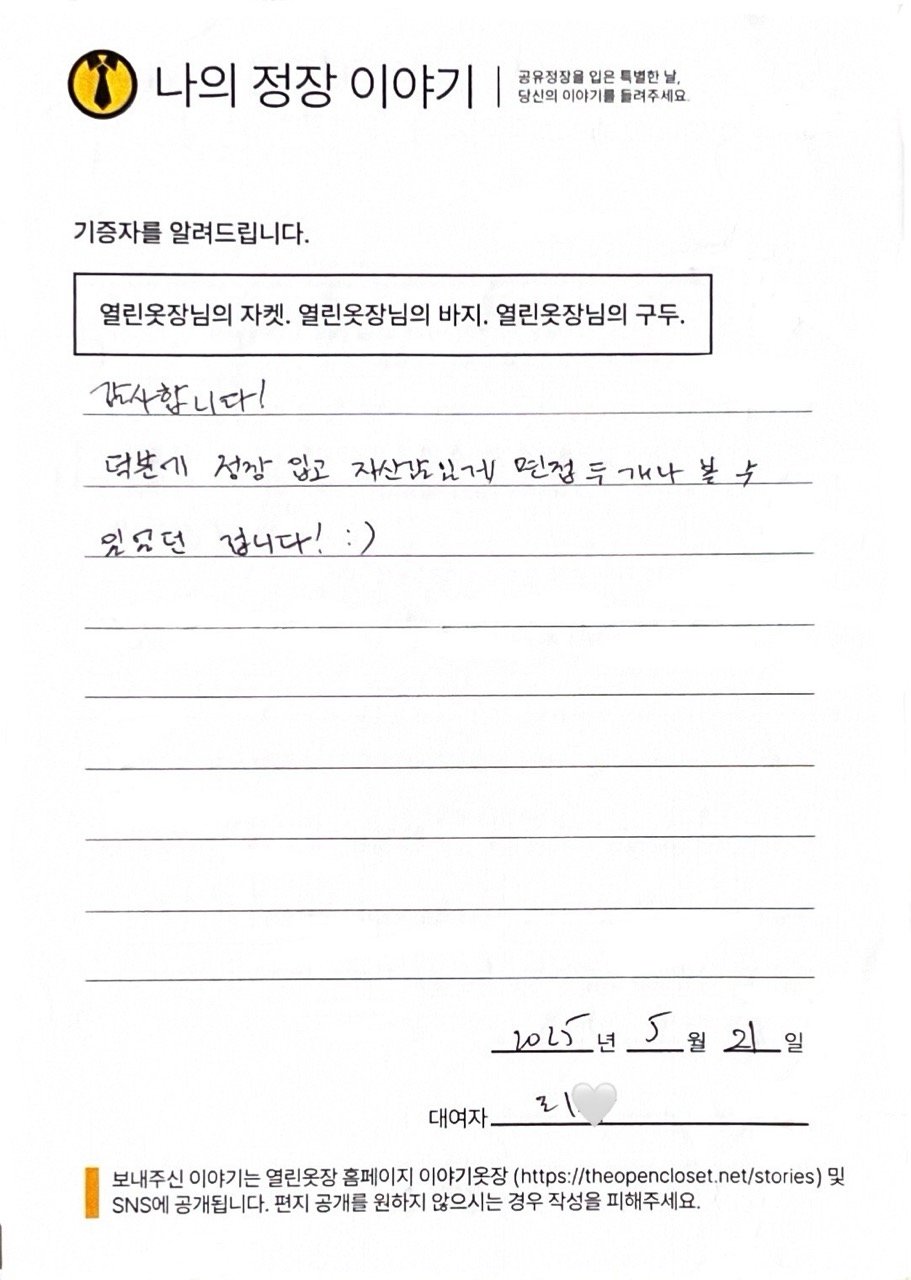 나의 정장 이야기
공유정장을 입은 특별한 날,
당신의 이야기를 들려주세요.
기증자를 알려드립니다.
열린옷장님의 자켓. 열린옷장님의 바지. 열린옷장님의 구두.
감사합니다!
덕분에 정장 입고 자신감있게 면접 두 개나 볼 수
있었던 겁니다! :)
2025년 5월 21일
대여자 리
보내주신 이야기는 열린옷장 홈페이지 이야기옷장 (https://theopencloset.net/stories) 및
SNS에 공개됩니다. 편지 공개를 원하지 않으시는 경우 작성을 피해주세요.